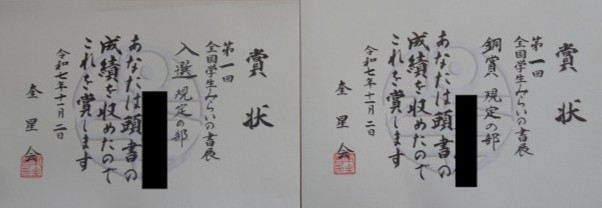 賞状
第一回
全国学生みらいの書展
銅賞 規定の部
あなたは頭書の
成績を収めたので
これを賞します
令和七年十一月二日
奎星会
賞状
第一回
全国学生みらいの書展
入選 規定の部
あなたは頭書の
成績を収めたので
これを賞します
令和七年十一月二日
奎星会